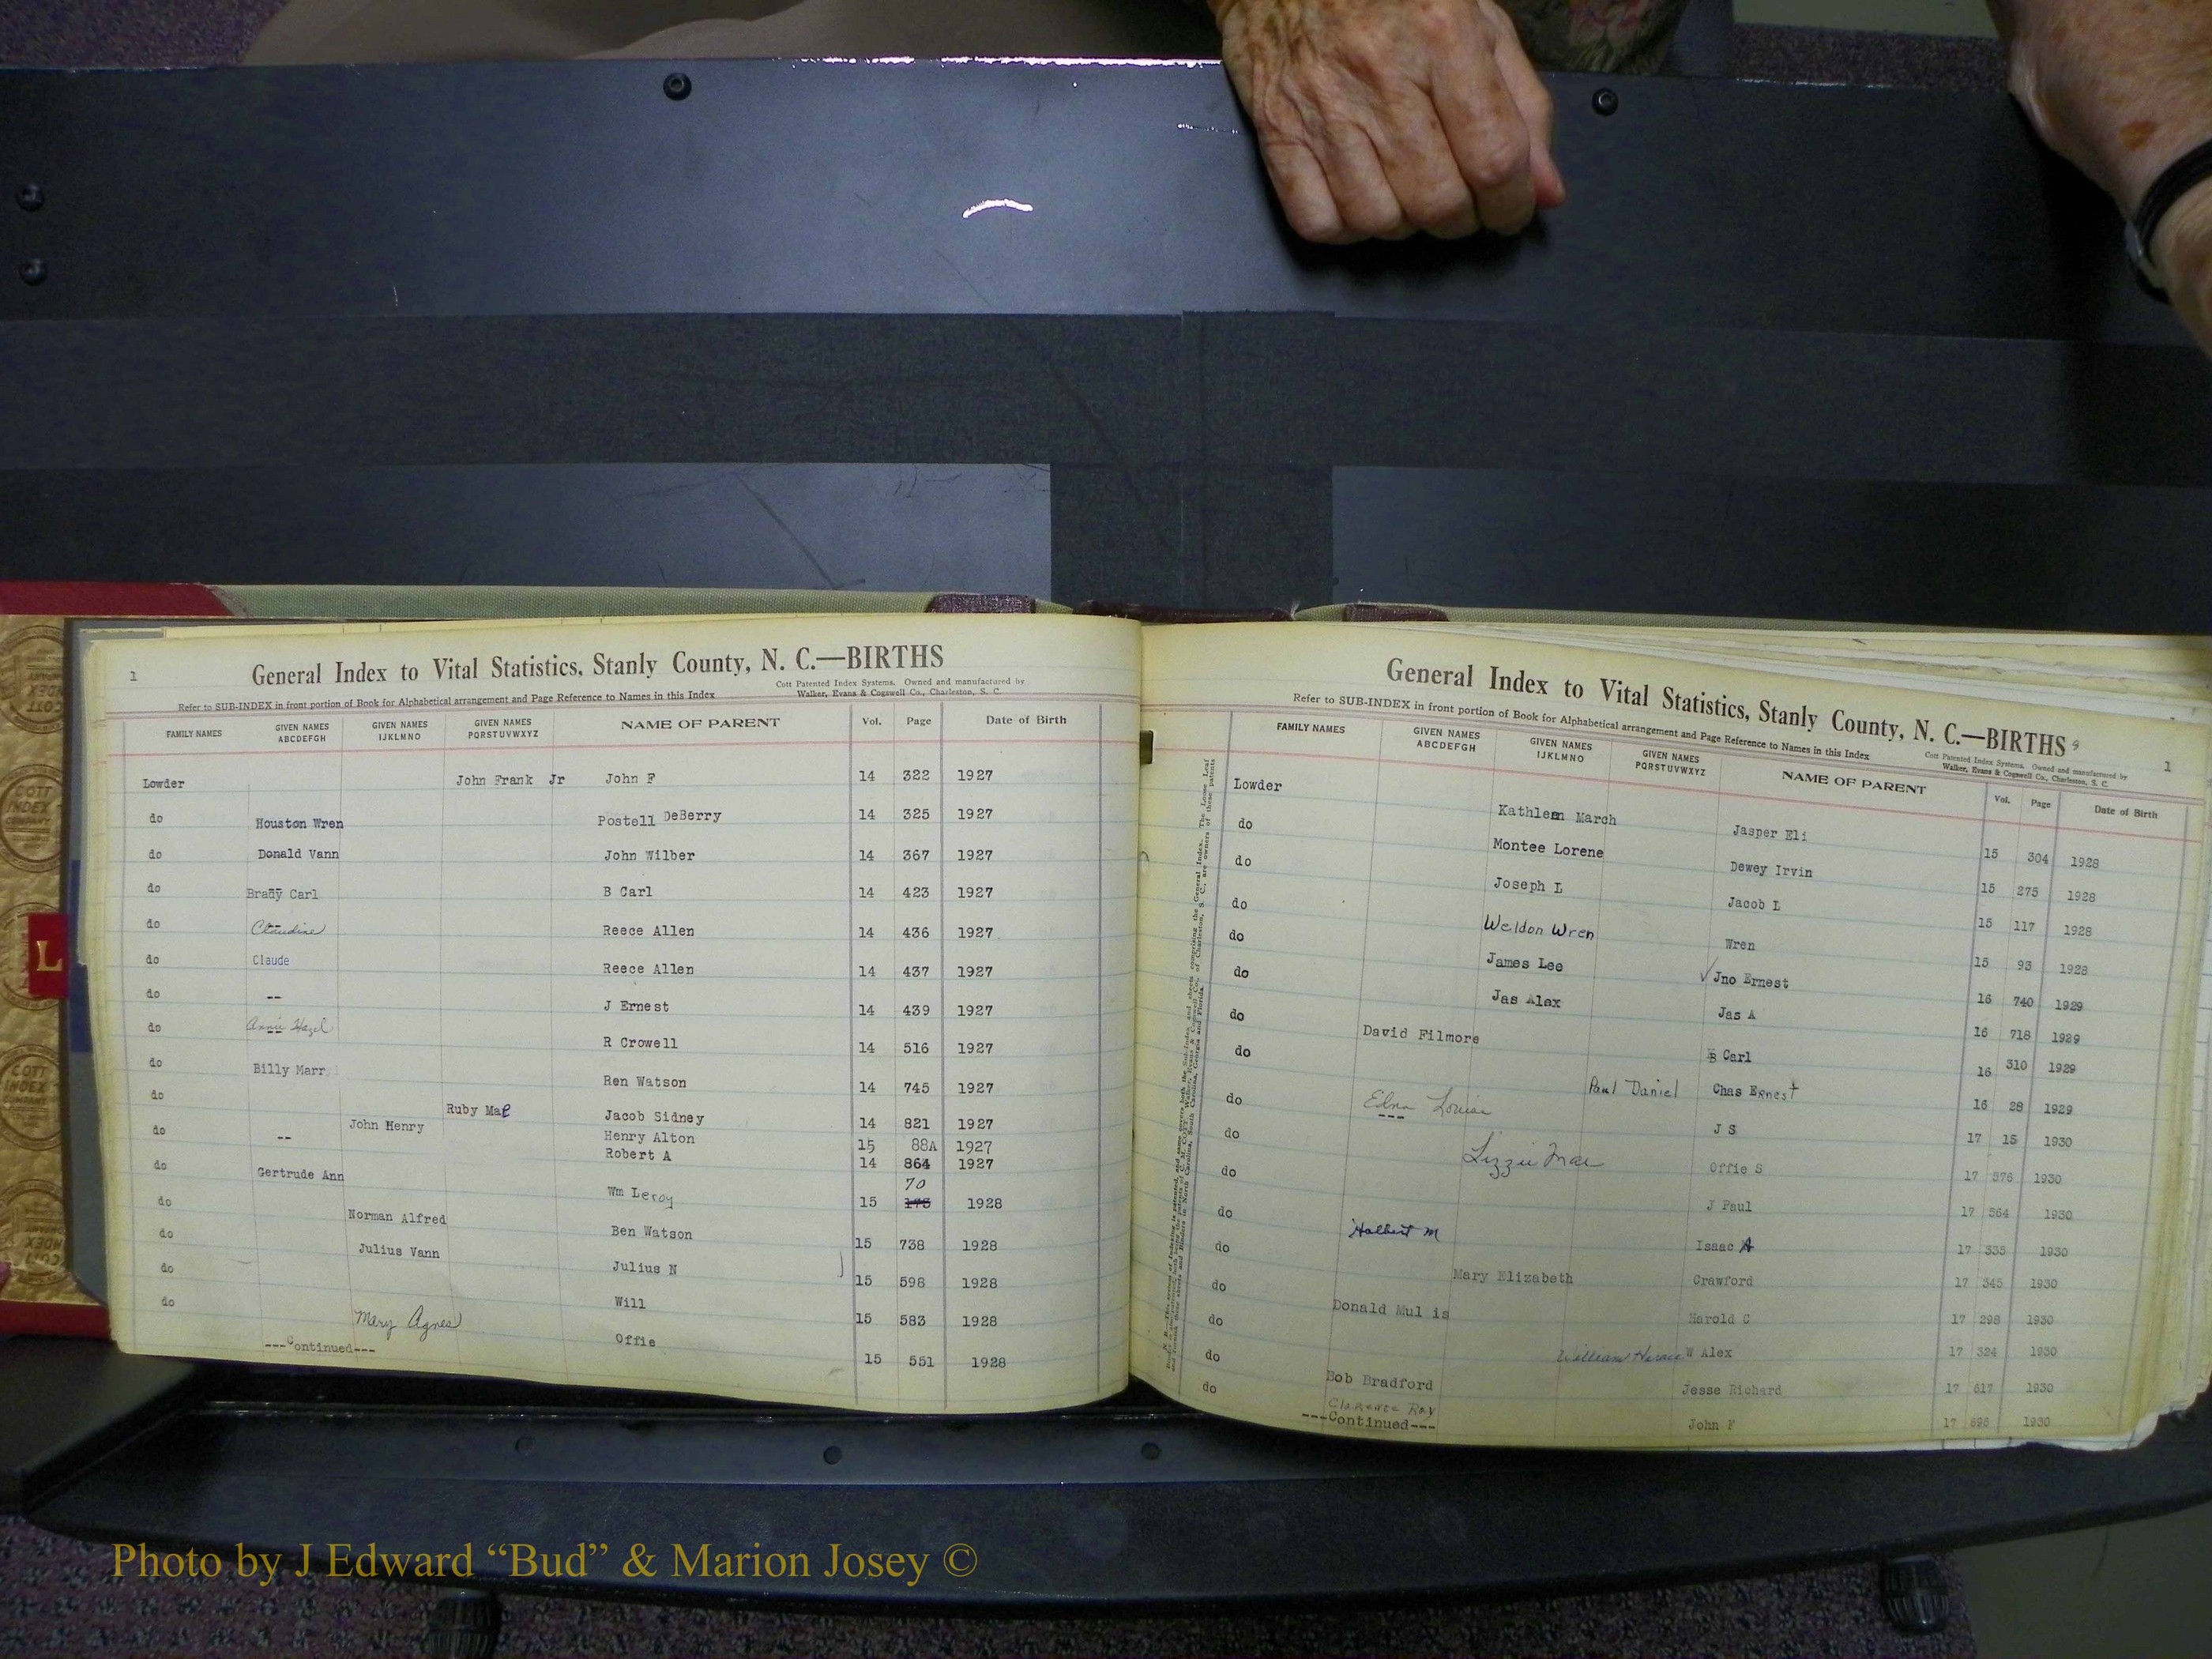 1
General Index to Vital Statistics, Stanly County, N. C.—BIRTHS
Cott Patented Index Systems. Owned and manufactured by
Walker, Evans & Cogswell Co., Charleston, S. C.
Refer to SUB-INDEX in front portion of Book for Alphabetical arrangement and Page Reference to Names in this Index
FAMILY NAMES GIVEN NAMES ABCDEFGH GIVEN NAMES IJKLMNO GIVEN NAMES PQRSTUVWXYZ NAME OF PARENT Vol. Page Date of Birth
Lowder John Frank Jr John F 14 322 1927
do Houston Wren Postell DeBerry 14 325 1927
do Donald Vann John Wilber 14 367 1927
do Brady Carl B Carl 14 423 1927
do Claudine Reece Allen 14 436 1927
do Claude Reece Allen 14 437 1927
do -- J Ernest 14 439 1927
do Annie Hazel R Crowell 14 516 1927
do Billy Marr Ren Watson 14 745 1927
do Ruby Mae Jacob Sidney 14 821 1927
John Henry Henry Alton 15 88A 1927
do -- Robert A 14 864 1927
do Gertrude Ann Wm Leroy 15 70 1928
do Norman Alfred Ben Watson 15 738 1928
do Julius Vann Julius N 15 598 1928
do Will 15 583 1928
do Mary Agnes Offie 15 551 1928
---Continued---
General Index to Vital Statistics, Stanly County, N. C.—BIRTHS 9
1
Refer to SUB-INDEX in front portion of Book for Alphabetical arrangement and Page Reference to Names in this Index
Cott Patented Index Systems. Owned and manufactured by
Walker, Evans & Cogswell Co., Charleston, S. C.
FAMILY NAMES GIVEN NAMES ABCDEFGH GIVEN NAMES IJKLMNO GIVEN NAMES PQRSTUVWXYZ NAME OF PARENT Vol. Page Date of Birth
Lowder Kathleen March Jasper Eli 15 304 1928
do Montee Lorene Dewey Irvin 15 275 1928
do Joseph L Jacob L 15 117 1928
do Weldon Wren Wren 15 93 1928
do James Lee Jno Ernest 16 740 1929
do Jas Alex Jas A 16 718 1929
do David Filmore B Carl 16 310 1929
do Paul Daniel Chas Ernest 16 28 1929
do Edna Louise J S 17 15 1930
do Lizzie Mae Offie S 17 576 1930
do J Paul 17 564 1930
do Halbert M Isaac A 17 335 1930
do Mary Elizabeth Crawford 17 345 1930
do Donald Mul is Harold C 17 298 1930
do William Horace W Alex 17 324 1930
do Bob Bradford Jesse Richard 17 617 1930
do Clarence Ray John F 17 1930
---Continued---
COTT
INDEX
COMPANY
L
Photo by J Edward “Bud” & Marion Josey ©